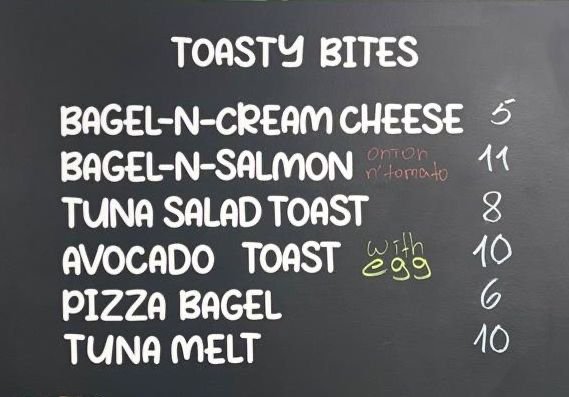 TOASTY BITES
BAGEL-N-CREAM CHEESE 5
BAGEL-N-SALMON onion n' tomato 11
TUNA SALAD TOAST 8
AVOCADO TOAST with egg 10
PIZZA BAGEL 6
TUNA MELT 10